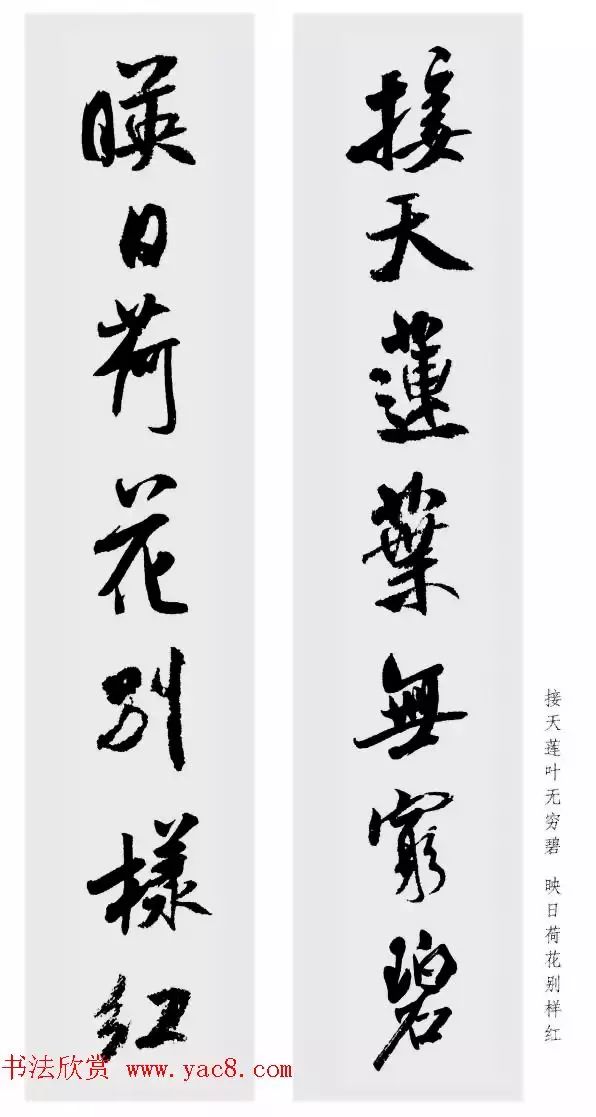 接天蓮葉無窮碧
暎日荷花別樣紅
接天莲叶无穷碧 映日荷花别样红
书法欣赏 www.yac8.com